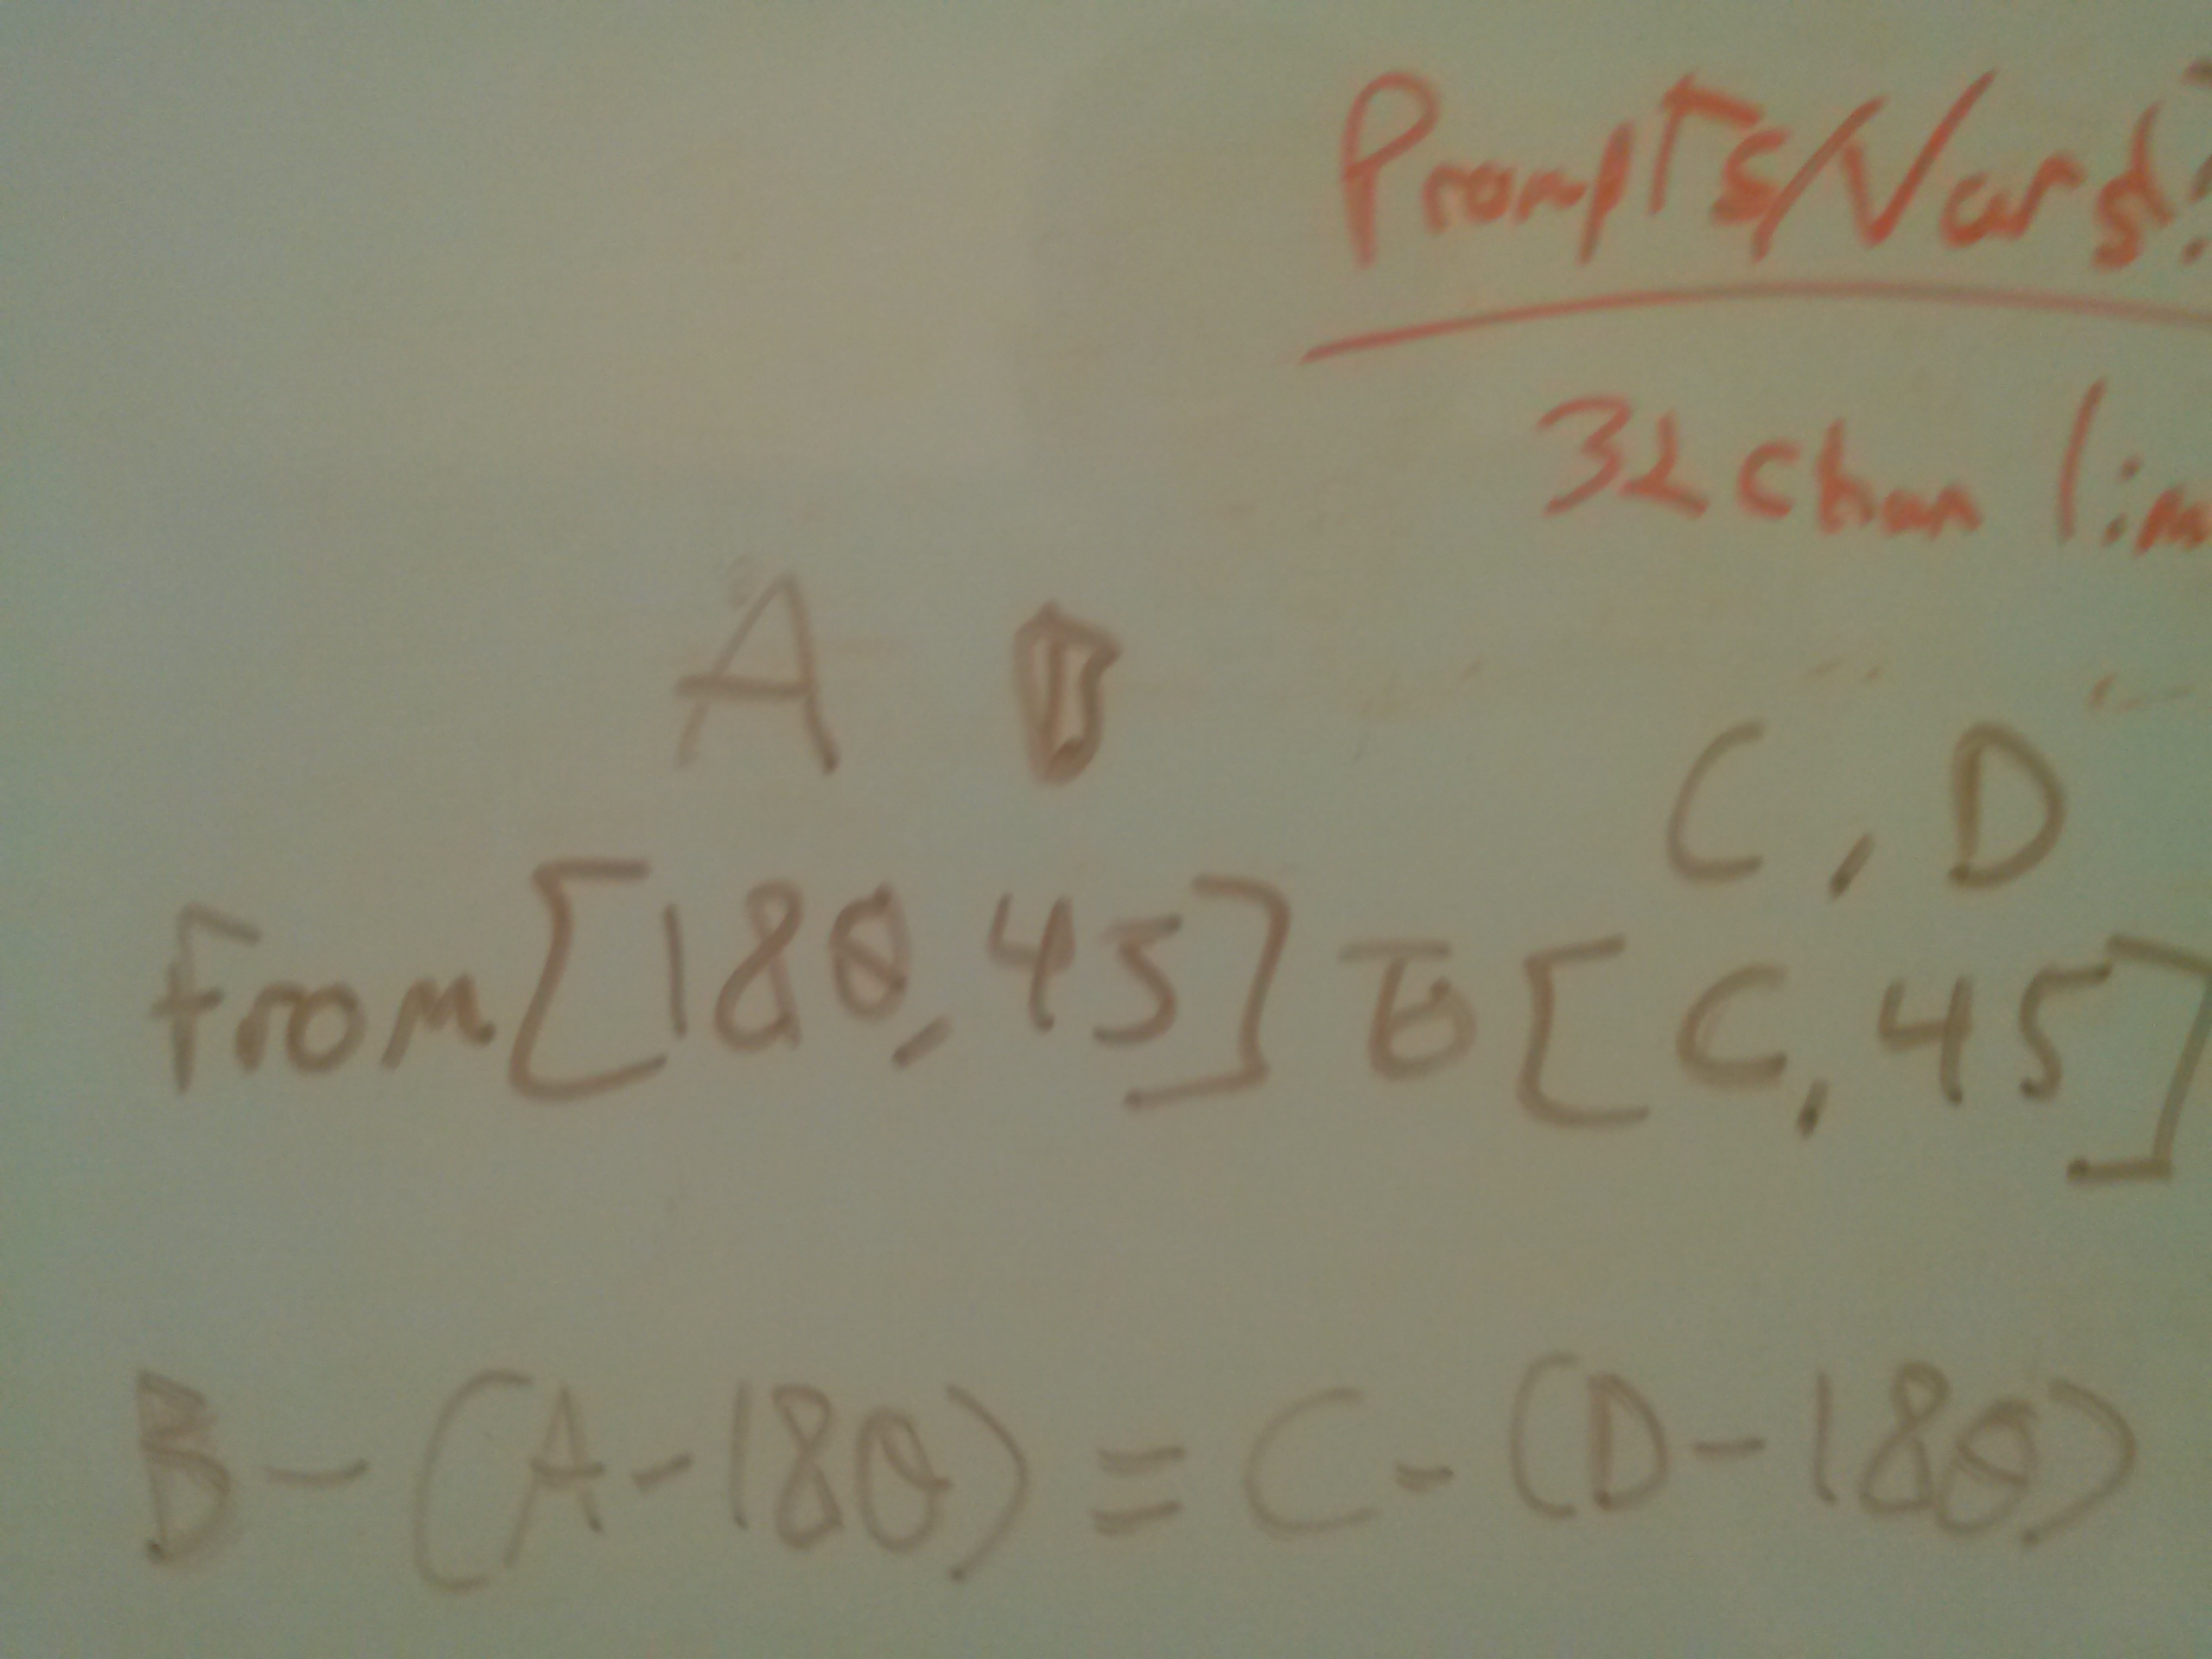 Prompts/Vars:
32 Char lim
A B
C, D
From [180, 45] to [C, 45]
B - (A - 180) = C - (D - 180)